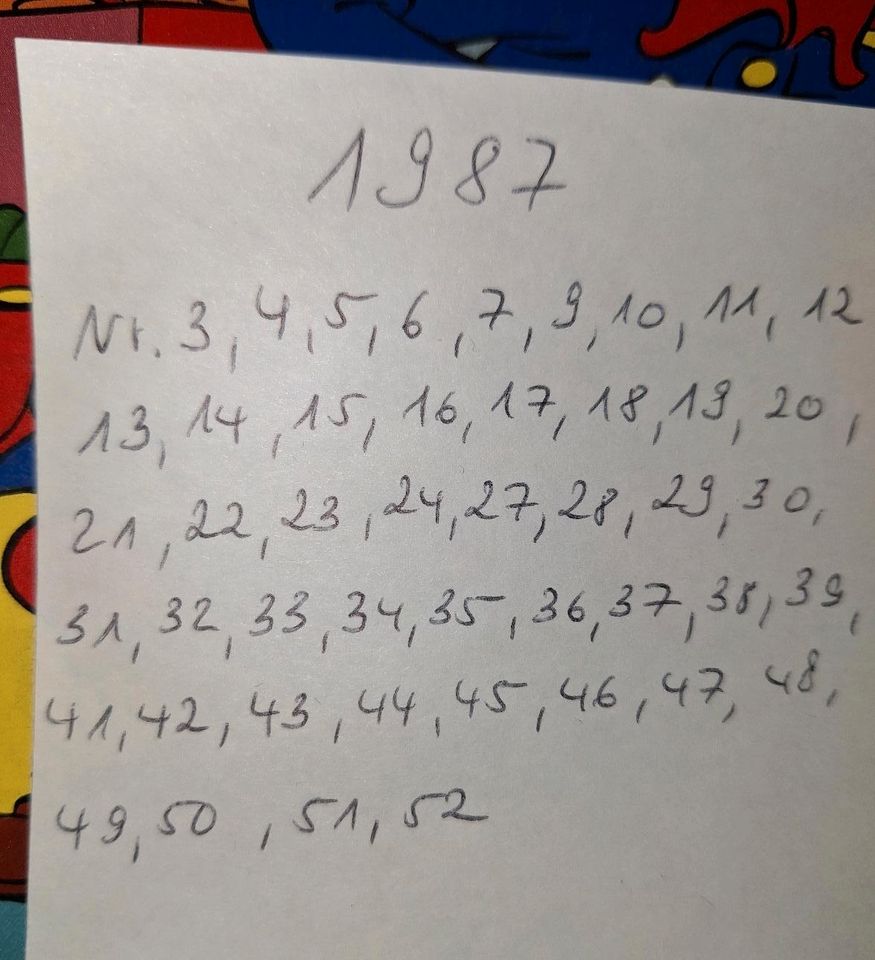 1987
Nr. 3, 4, 5, 6, 7, 9, 10, 11, 12
13, 14, 15, 16, 17, 18, 19, 20,
21, 22, 23, 24, 27, 28, 29, 30,
31, 32, 33, 34, 35, 36, 37, 38, 39,
41, 42, 43, 44, 45, 46, 47, 48,
49, 50, 51, 52